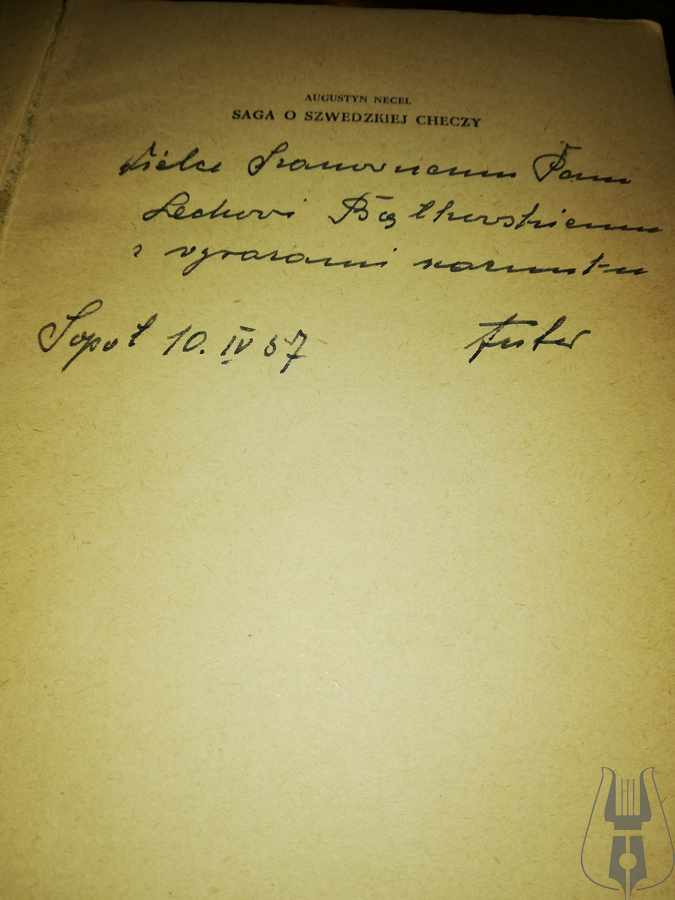 AUGUSTYN NECEL
SAGA O SZWEDZKIEJ CHECZY
Wielce Szanownemu Panu
Lechowi Bądkowskiemu
z wyrazami szacunku
Sopot 10. IV 57 Autor